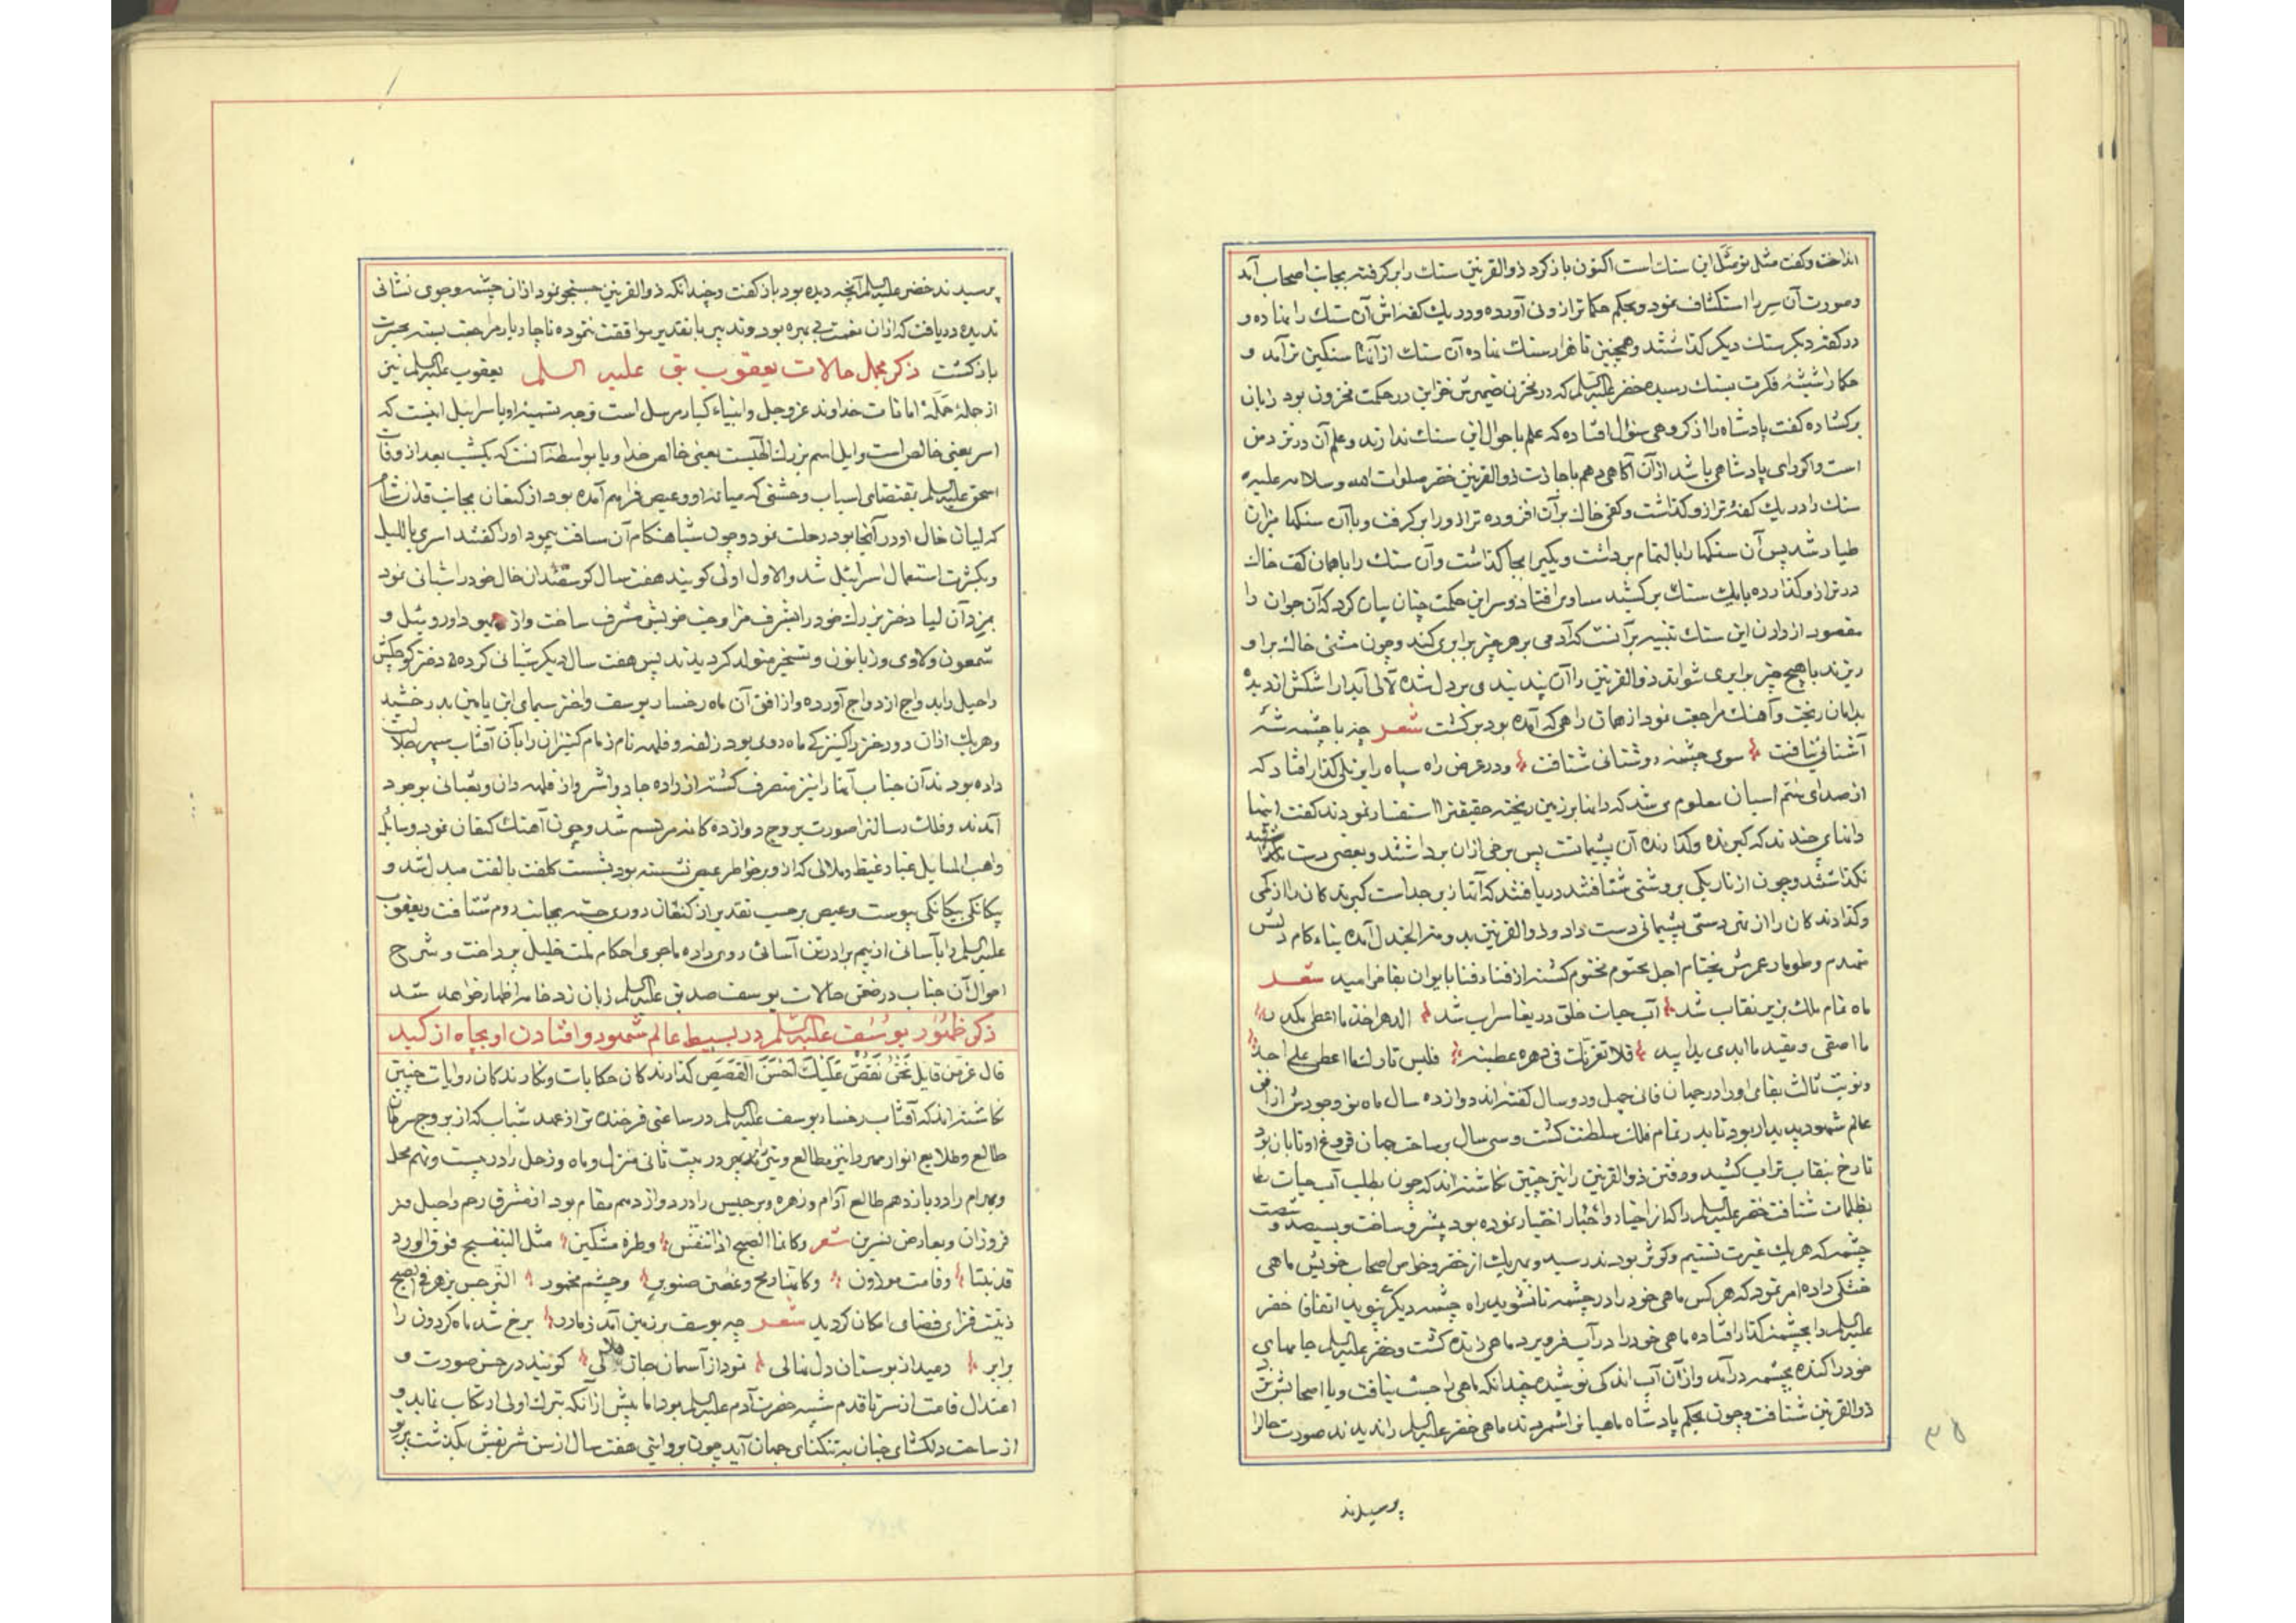 انداخت و کفت مثل تو مثل این سنک است اکنون باز کرد ذوالقرنین سنک را بر کرفته بجانب اصحاب آمد
و صورت آن سر را استکشاف نمود و بحکم حکما ترازوئی آورده و در یک کفه اش آن سنک را نهاده و
در کفه دیکر سنک دیکر کذاشتند و همچنین تا هزار سنک نهاده آن سنک از آنها سنکین تر آمد و
حکما را شیشهٔ فکرت بسنک رسیده خضر علیه السلم که در مخزن ضمیرش خزاین در حکمت مخزون بود زبان
برکشاده کفت پادشاه را از کروهی سؤال افتاده که علم باحوال این سنک ندارند و علم آن در نزد من
است و اکر رای پادشاهی باشد از آن آکاهی دهم باجازت ذوالقرنین خضر صلوات الله و سلامه علیه
سنک را در یک کفهٔ ترازو کذاشت و کفی خاک بر آن افزوده ترازو را بر کرفت و با آن سنکها میزان
طیار شد پس آن سنکها را بالتمام برداشت و یکی را بجا کذاشت و آن سنک را با همان کف خاک
در ترازو کذارده با یک سنک برکشید مساوی افتاد و سر این حکمت چنان بیان کرد که آن جوان را
مقصود از دادن این سنک تنبیه بر آنست که آدمی بر هر چیز برابری کند و چون مشتی خاک بر او
ریزند با هیچ چیز برابری نتواند ذوالقرنین را آن پند بندی بر دل شده لآلی آبدار اشکش از دیده
بدامان ریخت و آهنک مراجعت نمود از همان راهی که آمده بود برکشت شعر چه با چشمه
آشنائی نیافت سوی چشمه روشنائی شتافت و در عرض راه سپاه را بر تلی کذار افتاد که
از صدای سم اسبان معلوم می شد که دانها بر زمین ریخته حقیقت را استفسار نمودند کفت اینها
دانهای چندند که کیرنده و کذارنده آن پشیمانست پس برخی از آن برداشتند و بعضی دست کشیده
نکذاشتند و چون از تاریکی بروشنی شتافتند دریافتند که آنها زبرجد است کیرندکان را از کمی
و کذارندکان را از تهی دستی پشیمانی دست داد و ذوالقرنین بدومة الجندل آمده بناء کام
و طومار عمرش بختام اجل محتوم مختوم کشته از فناء فنا بایوان بقا خرامید شعر
ماه تمام ملک بزیر نقاب شد آب حیات خلق دریغا سراب شد الدهر اخذ ما اعطی مکدر
ما اصفی و مفید ما اهدی بدا بید فلا تغرنک فی دهره عطیته فلیس تارک ما اعطی علی احد
و نوبت ثالث بقای او را در جهان فانی چهل و دو سال کفته اند دوازده سال ماه نو وجودش از افق
عالم شهود پدیدار بود تا بدر تمام فلک سلطنت کشت و سی سال بر ساحت جهان فروغ او تابان بود
تا رخ بنقاب تراب کشید و رفتن ذوالقرنین را نیز چنین نکاشته اند که چون بطلب آب حیات
بظلمات شتافت خضر علیه السلم را که از اخیار و احبار اختیار نموده بود پیشرو ساخت و بسیصد و شصت
چشمه که هر یک غیرت تسنیم و کوثر بودند رسید و بهر یک از خضر و خواص اصحاب خویش ماهی
خشکی داده امر نمود که هر کس ماهی خود را در چشمه تا نشوید راه چشمه دیکر نپوید اتفاقا خضر
علیه السلم را بچشمهٔ کذار افتاده ماهی خود را در آب فرو برد ماهی زنده کشت و خضر علیه السلم جامهای
خود را کنده بچشمه در آمد و از آن آب اندکی نوشیده چندانکه ماهی را جست نیافت و با اصحاب نزد
ذوالقرنین شتافت و چون بحکم پادشاه ماهیان را شمردند ماهی خضر علیه السلم را ندیدند صورت حال را
پرسیدند
۳۵
پرسیدند خضر علیه السلم آنچه دیده بود باز کفت و چندانکه ذوالقرنین جستجو نمود از آن چشمه و جوی نشانی
ندیده دریافت که از آن نعمت بی بهره بود و تدبیر با تقدیر موافقت ننموده ناچار بار مراجعت بسته بحیرت
باز کشت ذکر مجمل حالات یعقوب نبی علیه السلم یعقوب علیه السلم نیز
از جملهٔ حملهٔ امانات خداوند عز و جل و انبیاء کبار مرسل است وجه تسمیهٔ او باسرائیل اینست که
اسر یعنی خالص است و ایل اسم بزرک الهیست یعنی خالص خدا و یا بواسطهٔ آنست که یکشب بعد از وفات
اسحق علیه السلم بمقتضای اسباب وحشتی که میانهٔ او و عیص فراهم آمده بود از کنعان بجانب فدان شام
که لیان خال او در آنجا بود رحلت نمود و چون شباهنکام آن مسافت پیمود او را کفتند اسری باللیل
و بکثرت استعمال اسرائیل شد و الاول اولی کویند هفت سال کوسفندان خال خود را شبانی نمود
بمزد آن لیا دختر بزرک خود را بشرف مزاوجت خویش مشرف ساخت و از یهودا و روئیل و
شمعون و لاوی و زبالون و یشخر متولد کردیدند پس هفت سال دیکر شبانی کرده دختر کوچکش
راحیل را بدواج ازدواج آورده و از افق آن ماه رخسار یوسف و اختر سیمای ابن یامین بدرخشید
و هر یک از آن دو دختر را کنیزکی ماه روی بود زلفه و فلهه نام زمام کنیزان را بآن آفتاب سپهر جلالت
داده بودند آن جناب آنها را نیز متصرف کشته از زاده جاد و اشر و از فلهه دان و نفتالی بوجود
آمدند و فلک رسالت را صورت بروج دوازده کانه مرتسم شد و چون آهنک کنعان نمود
واهب المسایل غبار غیظ و ملالی که از او بر خواطر عیص نشسته بود بشست کلفت بالفت مبدل شد و
بیکانکی بیکانکی پیوست و عیص بر حسب تقدیر از کنعان دوری جسته بجانب روم شتافت و یعقوب
علیه السلم را بآسانی از بیم برادر تن آسائی روی داده باجرای احکام ملت خلیل پرداخت و شرح
احوال آن جناب در ضمن حالات یوسف صدیق علیه السلم زبان زد خامه اظهار خواهد شد
ذکر ظهور یوسف علیه السلم در بسیط عالم شهود و افتادن او بچاه از کید
قال عز من قایل نحن نقص علیک احسن القصص کذارندکان حکایات و نکارندکان روایات چنین
نکاشته اند که آفتاب رخسار یوسف علیه السلم در ساعتی فرخنده تر از عهد شباب که از بروج سرطان
طالع و طلایع انوار مهر را نیز مطالع و تیر در بیت ثانی منزل و ماه و زحل را در بیست و نهم محل
و بهرام را در یازدهم طالع آرام و زهره و برجیس را در دوازدهم مقام بود از مشرق رحم راحیل
فروزان و بعارض نسرین شعر وکانما الصبح اذا تنفس و طره مشکین مثل البنفسج فوق الورد
قد نبتا و قامت موزون و کانها رمح و غصن صنوبر و چشم مخمور النرجس یزهر فی الصبح
زینت فزای فضای امکان کردید شعر چه یوسف بر زمین آمد ز مادر برخ شد ماه کردون را
برابر دمید از بوستان دل نهالی نمود از آسمان جان هلالی کویند در حسن صورت و
اعتدال قامت از سر تا قدم شبیه حضرت آدم علیه السلم بود اما پیش از آنکه بترک اولی ارتکاب نماید و
از ساحت دلکشای جنان به تنکنای جهان آید چون بروایتی هفت سال از سن شریفش بکذشت